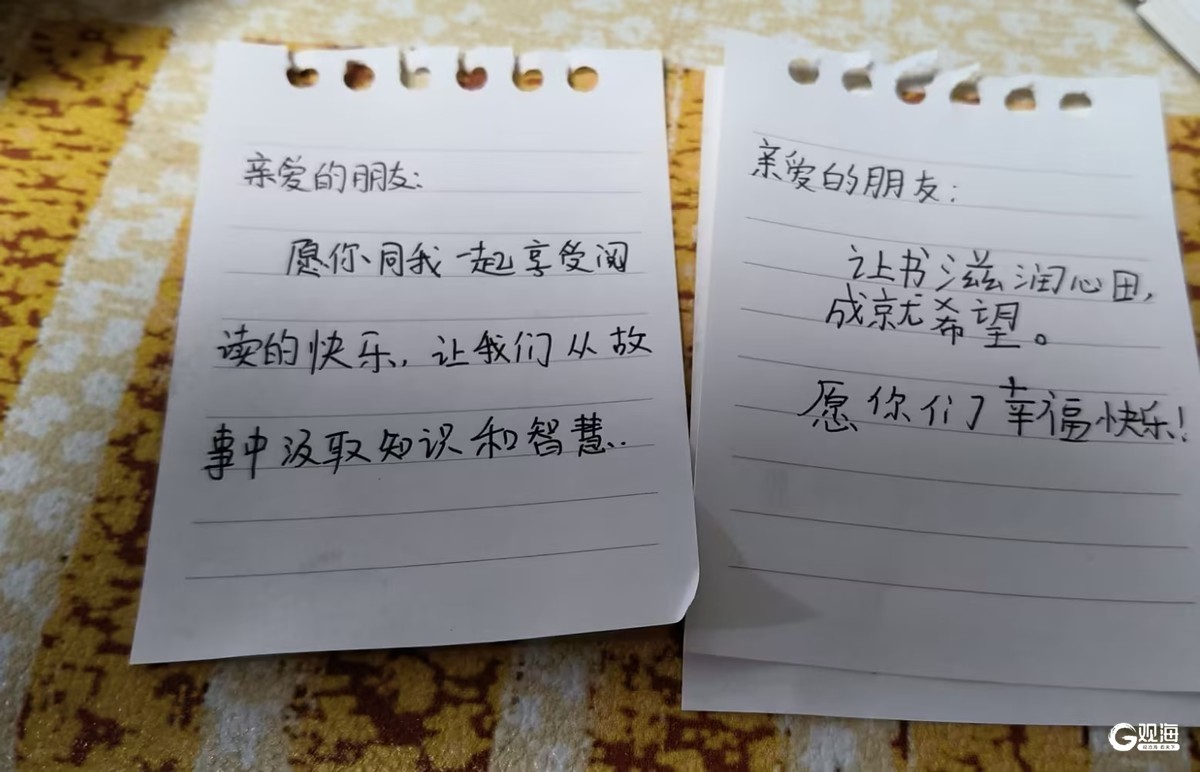 亲爱的朋友:
愿你同我一起享受阅
读的快乐,让我们从故
事中汲取知识和智慧.
亲爱的朋友:
让书滋润心田,
成就希望。
愿你们幸福快乐!
观海